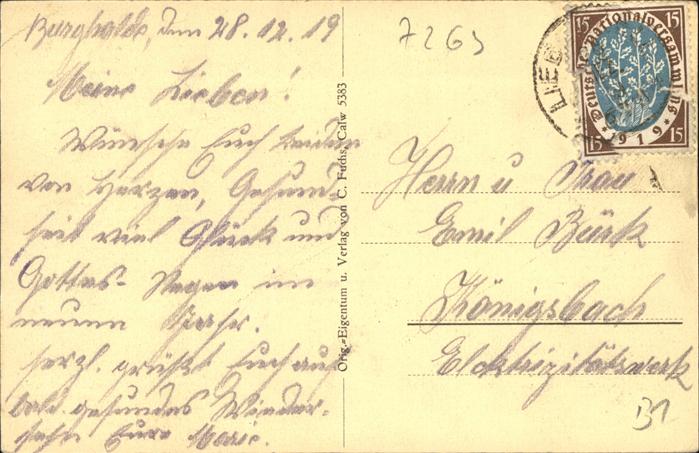 Burghalde, den 28.12.19
Meine Lieben!
Wünsche Euch beiden
von Herzen, Gesund-
heit viel Glück und
Gottes- Segen im
neuen Jahr.
herzl. grüßt Euch auf
bald. gesundes Wieder-
sehn Eure Marie.
Orig.-Eigentum u. Verlag von C. Fuchs, Calw 5383
7263
LIEB
15 15
Deutsche Nationalversammlung
15 * 1919 * 15
Herrn u Frau
Emil Bürk
Königsbach
Elektrizitätswerk
B1